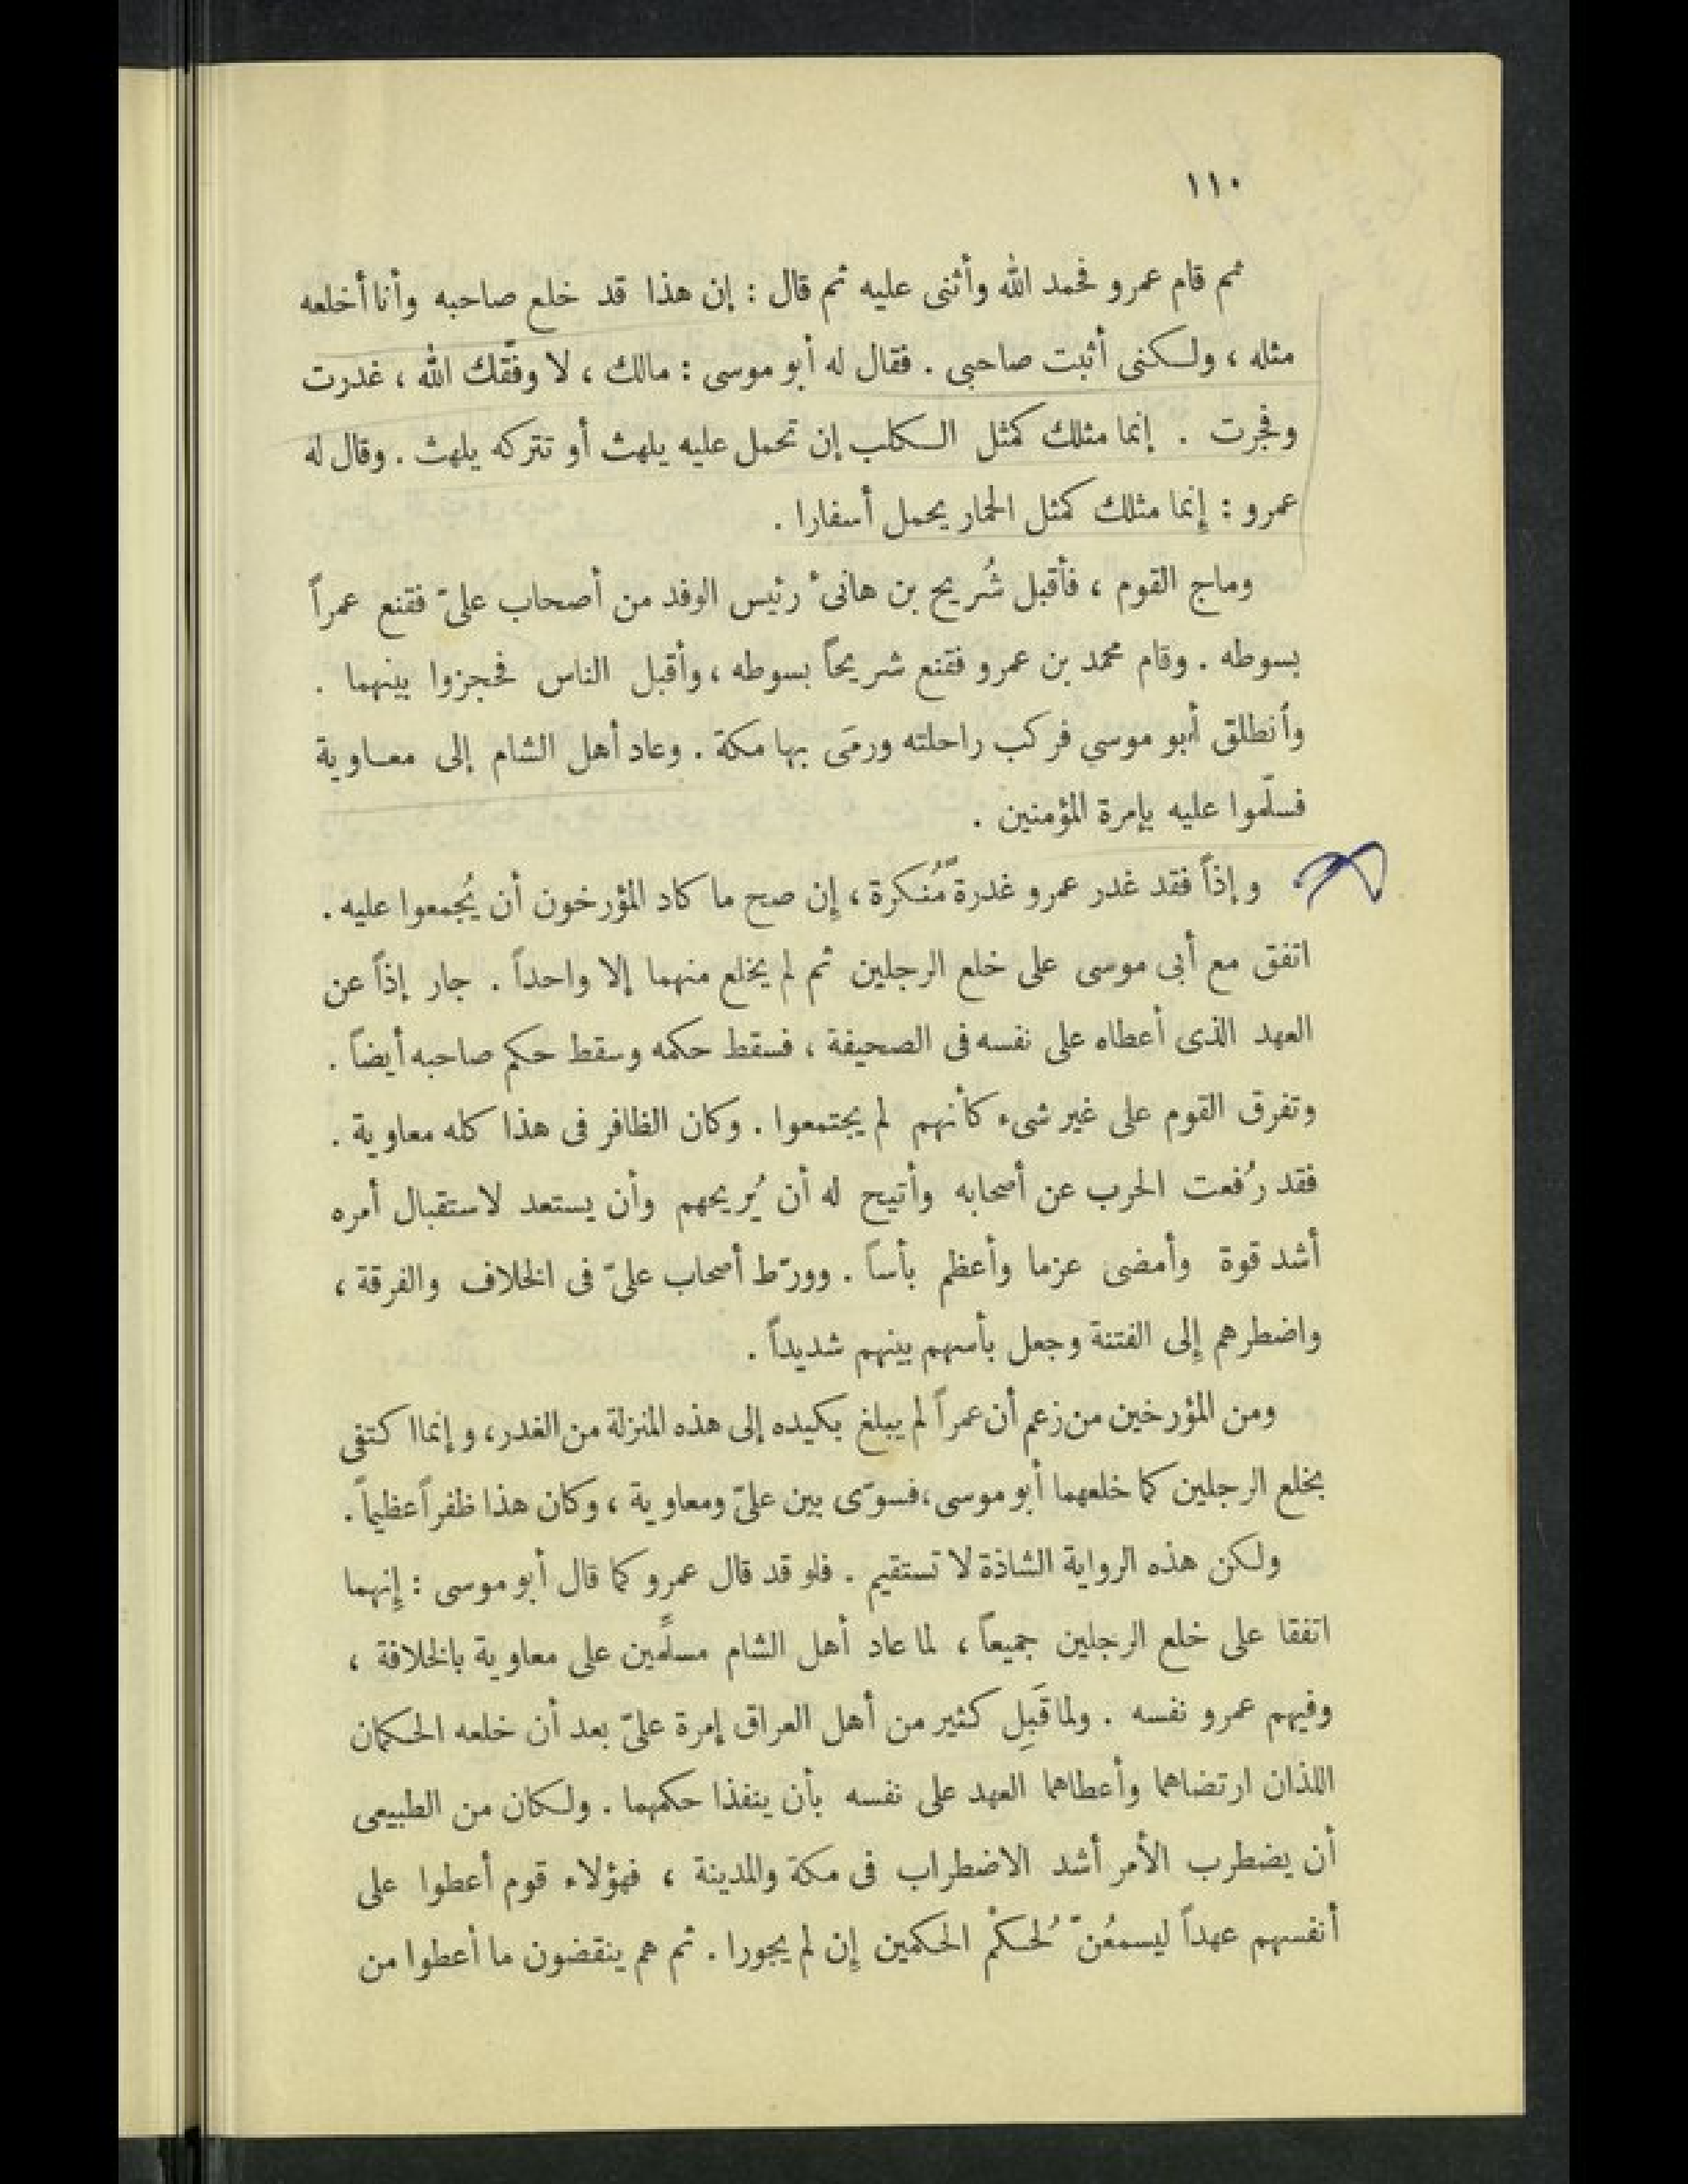 ١١٠
ثم قام عمرو فحمد الله وأثنى عليه ثم قال : إن هذا قد خلع صاحبه وأنا أخلعه
مثله ، ولكنى أثبت صاحبى . فقال له أبو موسى : مالك ، لا وفّقك الله ، غدرت
وفجرت . إنما مثلك كمثل الكلب إن تحمل عليه يلهث أو تتركه يلهث . وقال له
عمرو : إنما مثلك كمثل الحمار يحمل أسفارا .
وماج القوم ، فأقبل شُريح بن هانئ رئيس الوفد من أصحاب علىّ فقنع عمراً
بسوطه . وقام محمد بن عمرو فقنع شريحاً بسوطه ، وأقبل الناس فحجزوا بينهما .
وأنطلق أبو موسي فركب راحلته ورمَى بها مكة . وعاد أهل الشام إلى معاوية
فسلّموا عليه بإمرة المؤمنين .
وإذاً فقد غدر عمرو غدرة مُنكرة ، إن صح ما كاد المؤرخون أن يُجمعوا عليه .
اتفق مع أبى موسى على خلع الرجلين ثم لم يخلع منهما إلا واحداً . جار إذاً عن
العهد الذى أعطاه على نفسه فى الصحيفة ، فسقط حكمه وسقط حكم صاحبه أيضاً .
وتفرق القوم على غير شىء كأنهم لم يجتمعوا . وكان الظافر فى هذا كله معاوية .
فقد رُفعت الحرب عن أصحابه وأتيح له أن يُريحهم وأن يستعد لاستقبال أمره
أشد قوة وأمضى عزما وأعظم بأساً . وورّط أصحاب علىّ فى الخلاف والفرقة ،
واضطرهم إلى الفتنة وجعل بأسهم بينهم شديداً .
ومن المؤرخين من زعم أن عمراً لم يبلغ بكيده إلى هذه المنزلة من الغدر ، وإنما اكتفى
بخلع الرجلين كما خلعهما أبو موسى ، فسوّى بين علىّ ومعاوية ، وكان هذا ظفراً عظيماً .
ولكن هذه الرواية الشاذة لا تستقيم . فلو قد قال عمرو كما قال أبو موسى : إنهما
اتفقا على خلع الرجلين جميعاً ، لما عاد أهل الشام مسلّمين على معاوية بالخلافة ،
وفيهم عمرو نفسه . ولما قَبِل كثير من أهل العراق إمرة علىّ بعد أن خلعه الحكمان
اللذان ارتضاهما وأعطاهما العهد على نفسه بأن ينفذا حكمهما . ولكان من الطبيعى
أن يضطرب الأمر أشد الاضطراب فى مكة والمدينة ، فهؤلاء قوم أعطوا على
أنفسهم عهداً ليسمعُنّ لُحكمْ الحكمين إن لم يجورا . ثم هم ينقضون ما أعطوا من